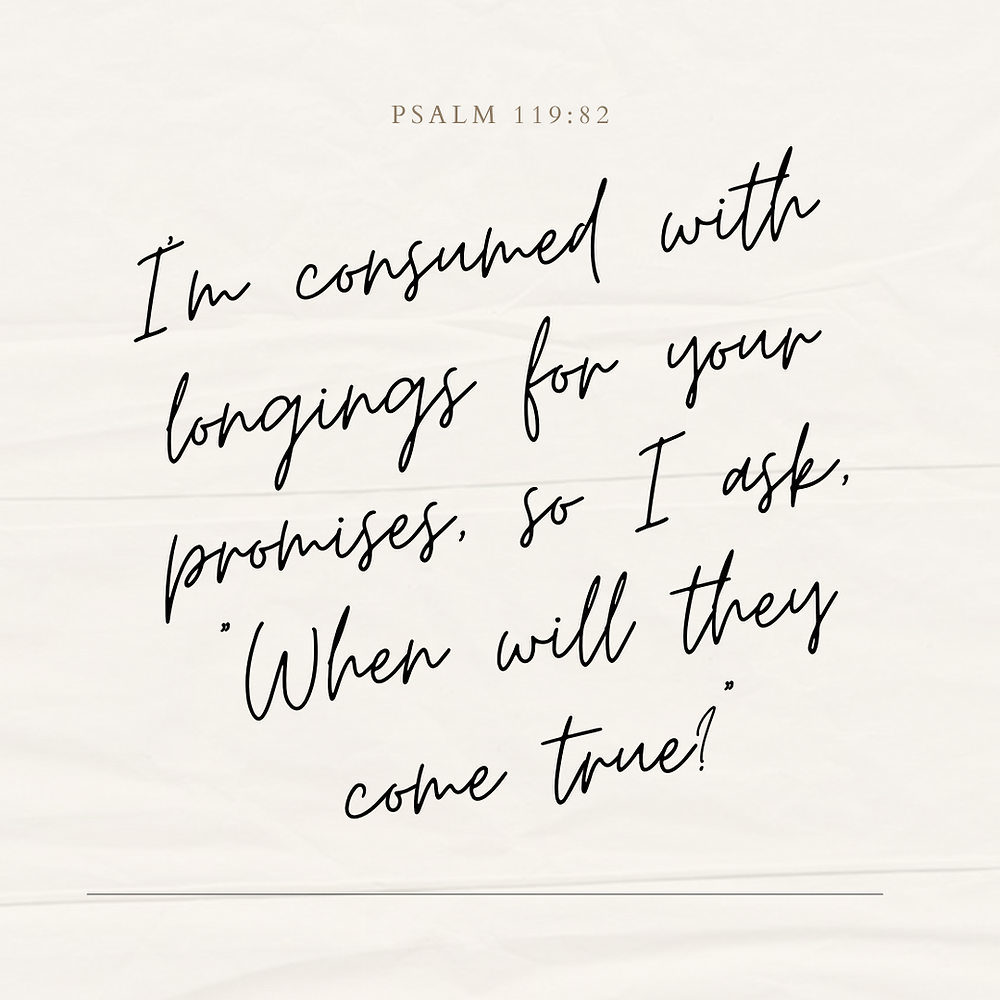 PSALM 119:82
I'm consumed with
longings for your
promises, so I ask,
"When will they
come true?"